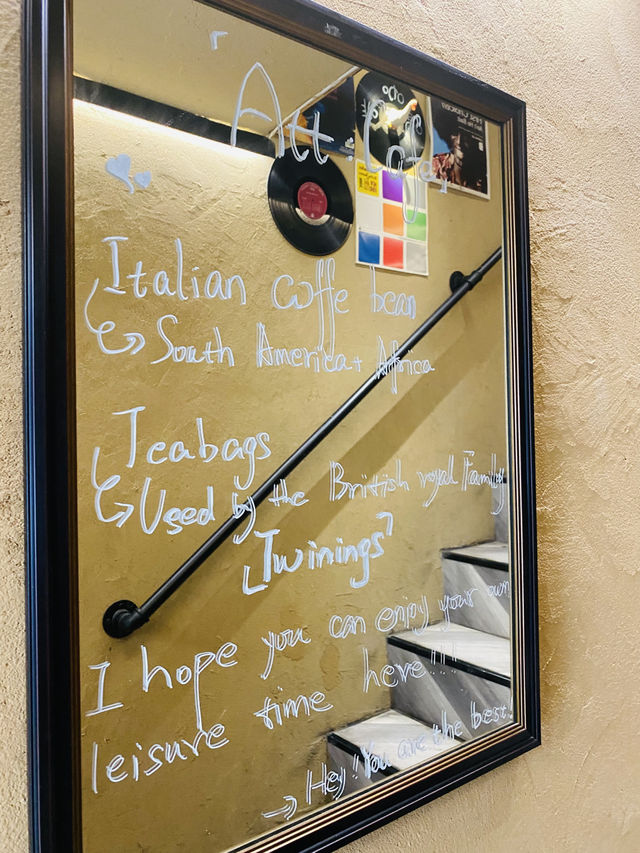 Att. Cafe
Italian coffe bean
South America + Africa
Teabags
Used by the British royal Family
「Twinings」
I hope you can enjoy your own
leisure time here!!!
→ Hey! You are the best!